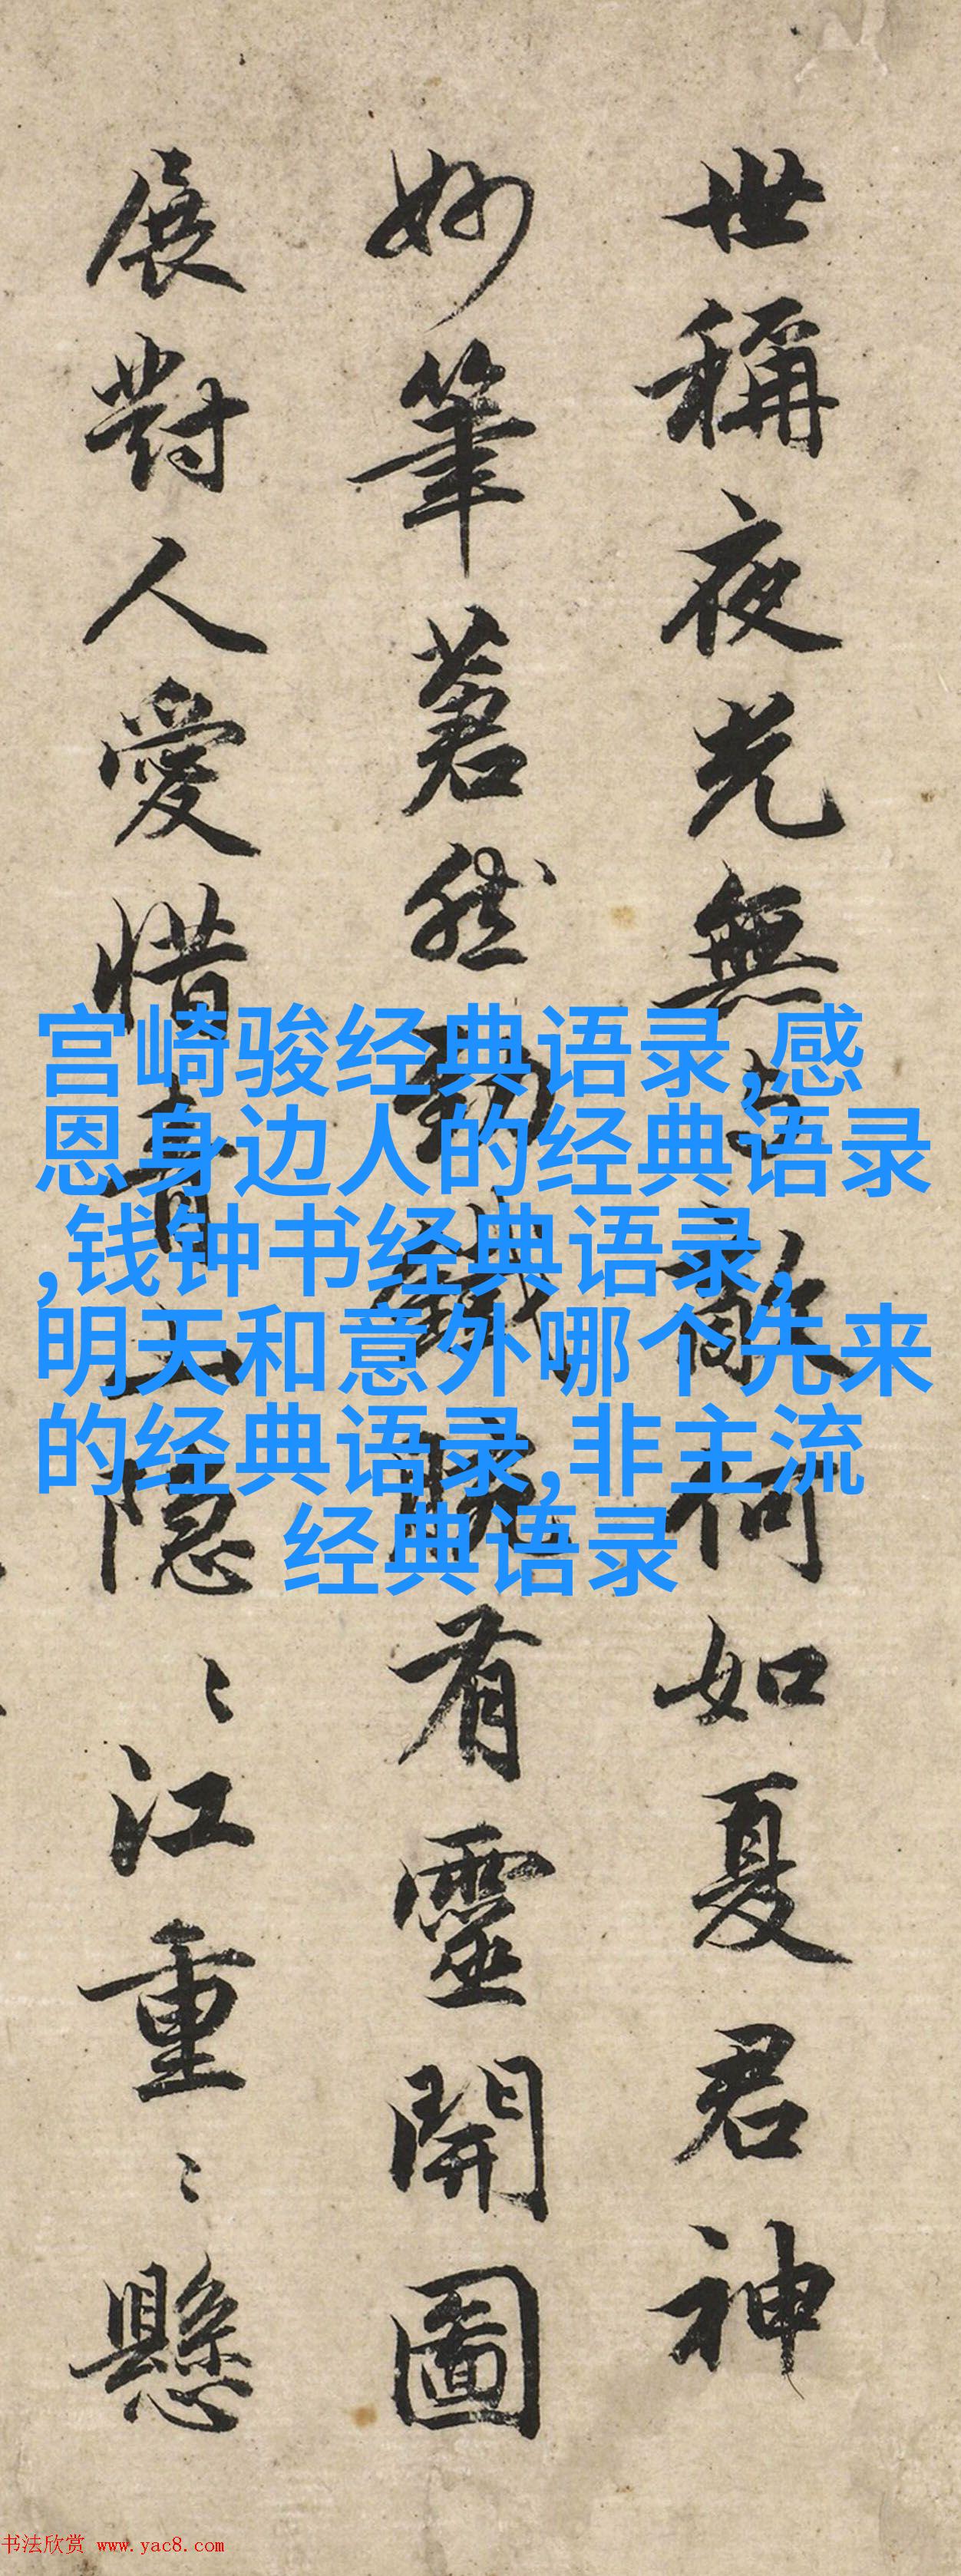 世稱夜光無与敵何如夏君神
妙筆蒼然有靈開圖
展對人愛惜青山隱〻江重〻懸
宫崎骏经典语录,感
恩身边人的经典语录
,钱钟书经典语录,
明天和意外哪个先来
的经典语录,非主流
经典语录
书法欣赏 www.yac8.com